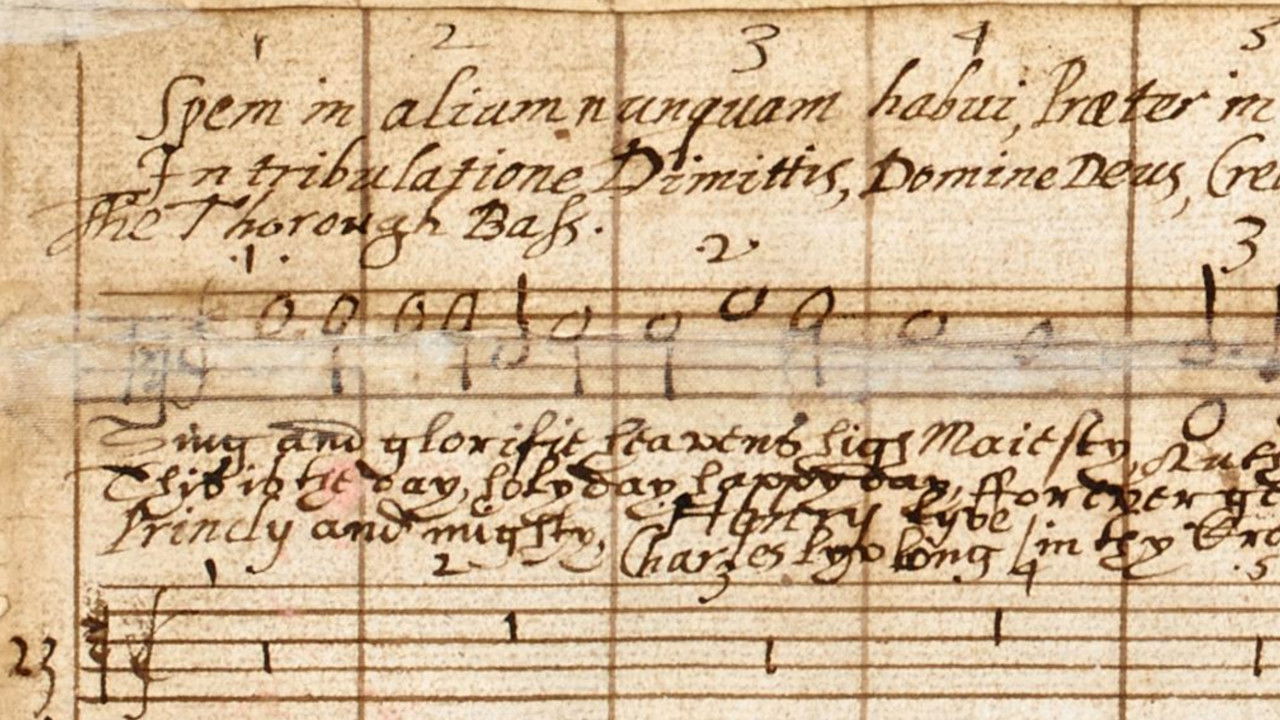 1 2 3 4 5
Spem in alium nunquam habui, Præter in
In tribulatione Dimittis, Domine Deus, Cre
The Thorough Bass.
.1. .2. 3
Sing and glorifie heavens high Maiesty,
This is the day, holy day, happy day, ffor ever
Princly and mighty, Henry lyve
Charles lyve long in thy
1 2 3 4 .5
23